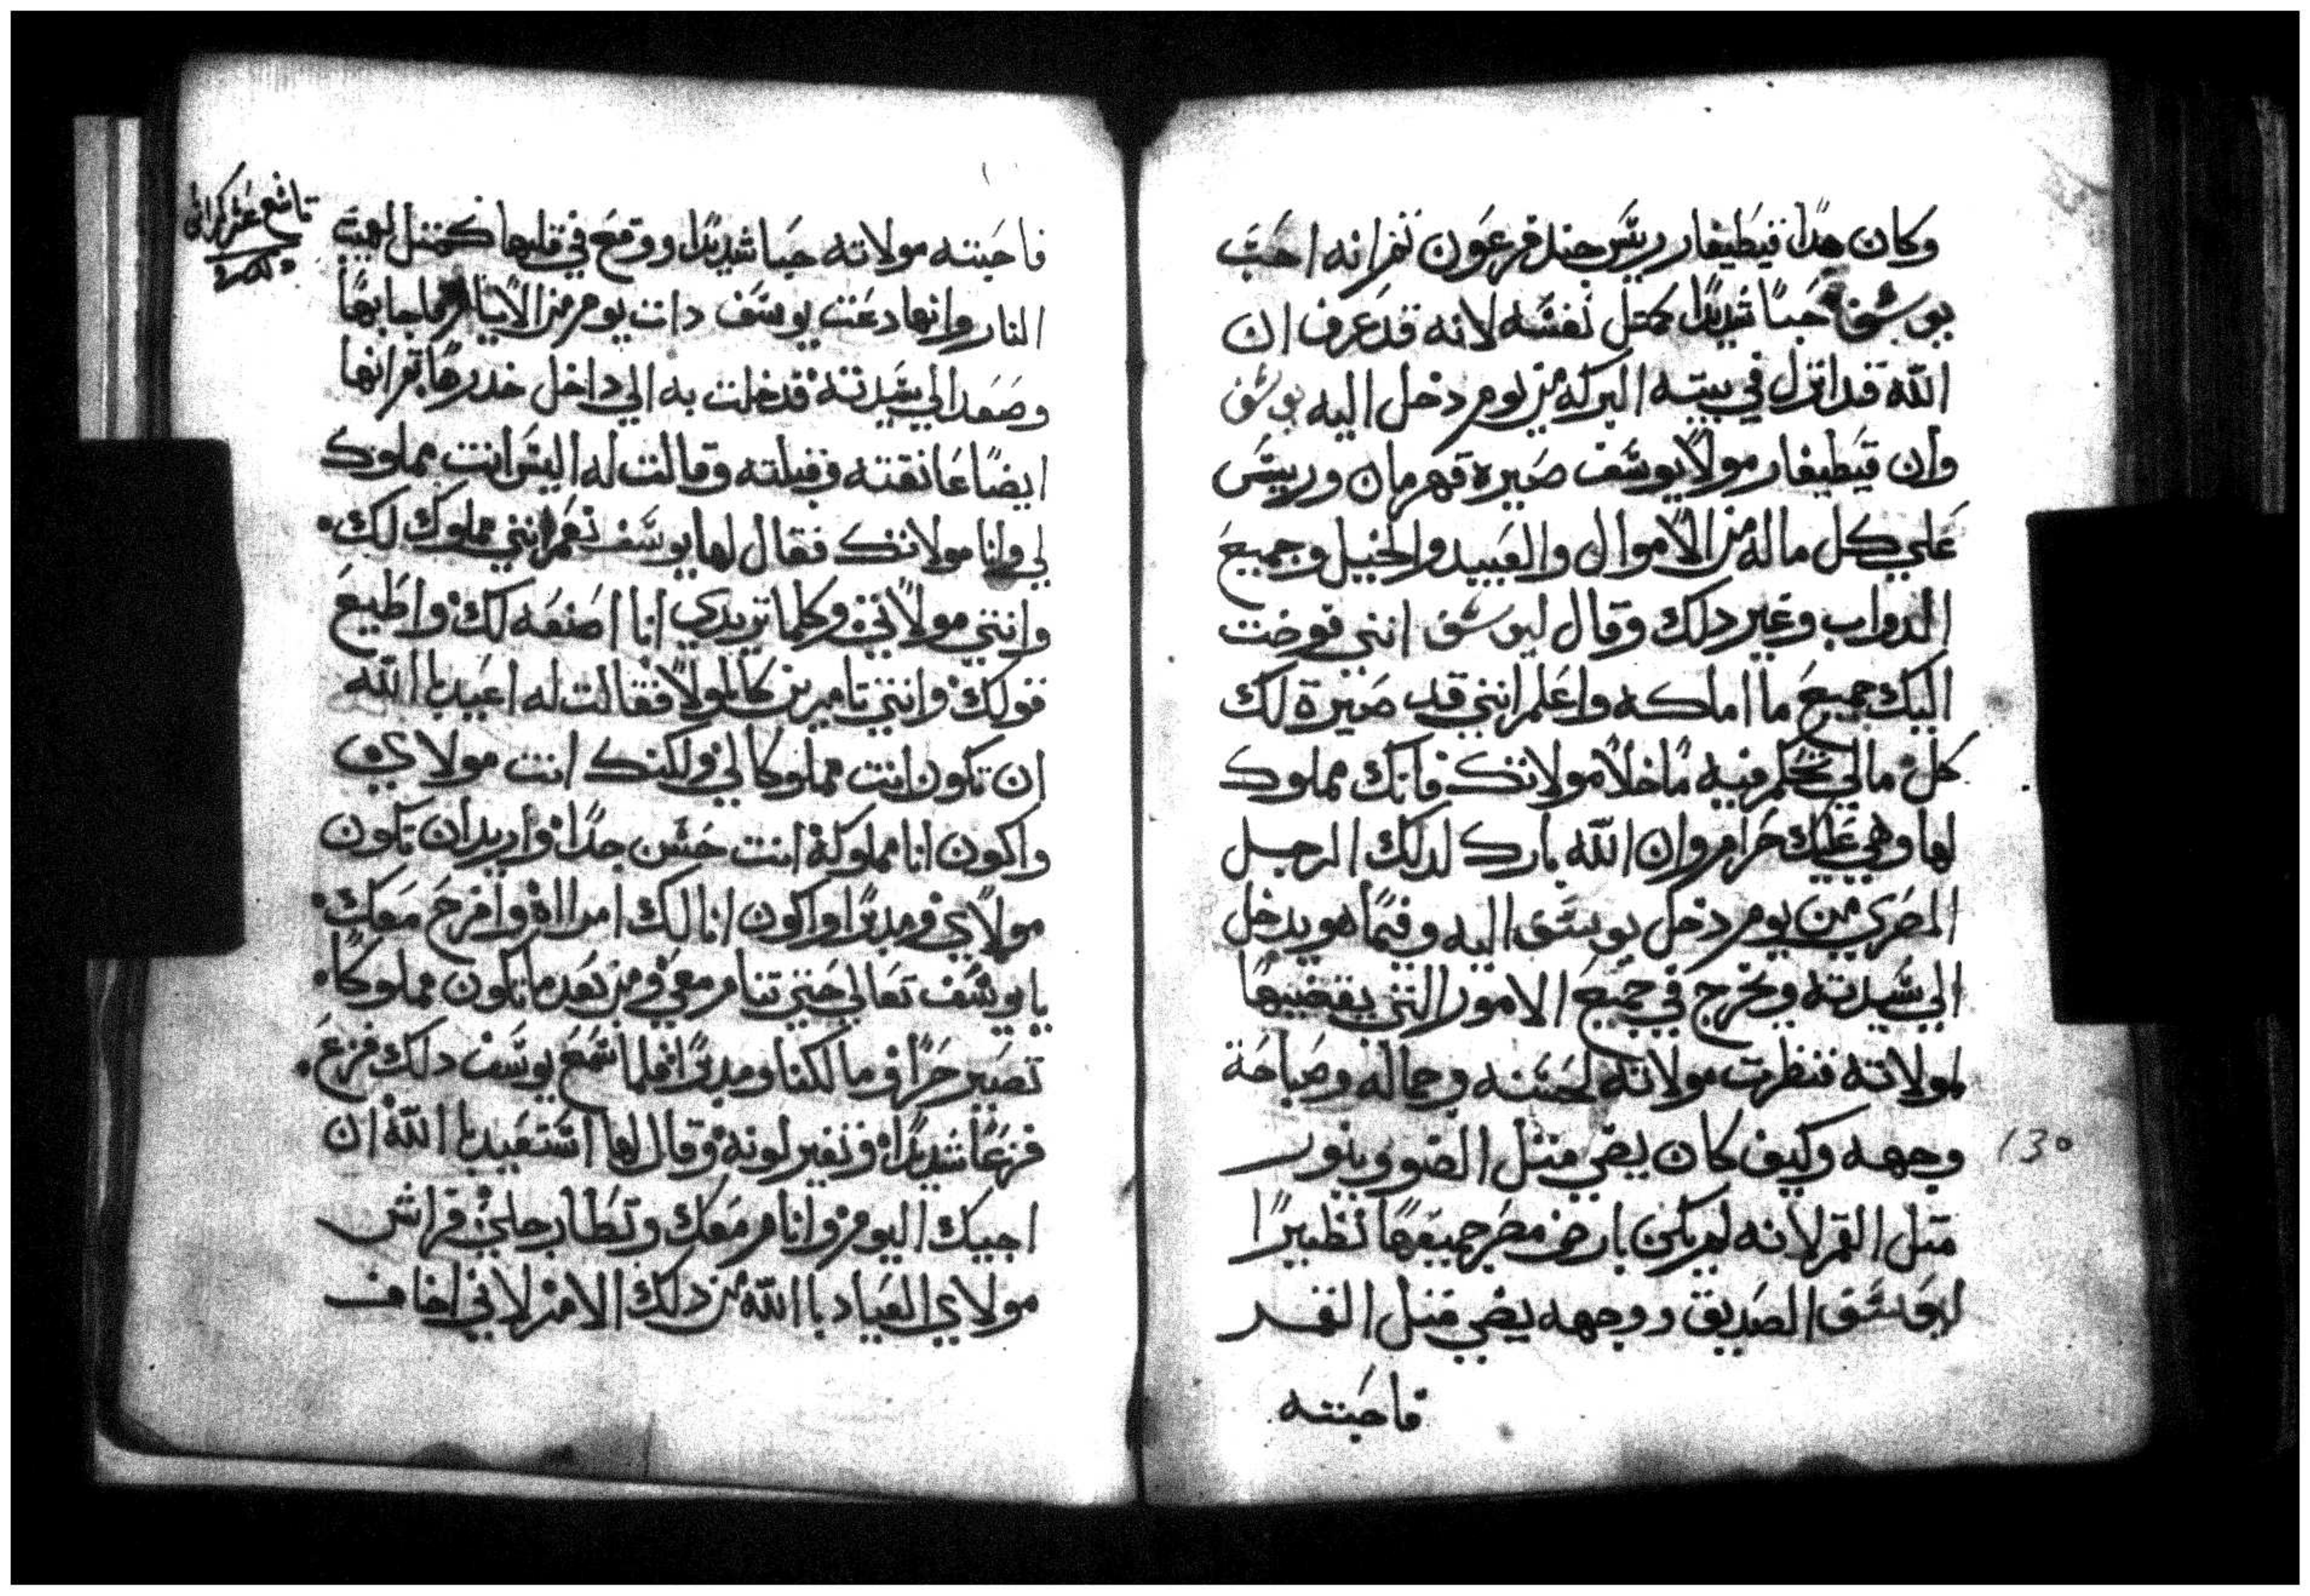 وكان هدا قيطيفار رييس جند فرعون تم انه احب
يوسف حبا شديدا كمتل نفسه لانه قد عرف ان
الله قد انزل في بيته البركه من يوم دخل اليه يوسف
وان قيطيفار مولا يوسف صيره قهرمان ورييس
علي كل ماله من الاموال والعبيد والخيل وجميع
الدواب وغير دلك وقال ليوسف انني فوضت
اليك جميع ما املكه واعلم انني قد صيرة لك
كل مالي تحكم فيه ما خلا مولاتك فانك مملوك
لها وهي عليك حرام وان الله بارك لدلك الرجل
المصري من يوم دخل يوسف اليه وفيما هو يدخل
الي سيدته ويخرج في جميع الامور التي يقضيها
لمولاته فنظرت مولاته لحسنه وجماله وصباحة
وجهه وكيف كان يضي متل الضوو وينور
متل القمر لانه لم يكن بارض مصر جميعها نظيرا
ليوسف الصديق ووجهه يضي متل القمر
فاحبته
130
تاسع عشر كراس
فاحبته مولاته حبا شديدا ووقع في قلبها كمتل لهيب
النار وانها دعت يوسف دات يوم من الايام فاجابها
وصعد الي سيدته فدخلت به الي داخل خدرها تم انها
ايضا عانقته وقبلته وقالت له اليس انت مملوك
لي وانا مولاتك فقال لها يوسف نعم انني مملوك لك
وانتي مولاتي وكلما تريدي انا اصنعه لك واطيع
قولك وانتي تامرين كالمولا فقالت له اعيد با الله
ان تكون انت مملوكا لي ولكنك انت مولاي
واكون انا مملوكة انت حسن جدا واريد ان تكون
مولاي ومدبرا واكون انا لك امراة وافرح معك
يا يوسف تعالي حتي تنام معي ومن بعد ما تكون مملوكا
تصير حرا ومالكنا ومدبرا فلما سمع يوسف دلك فزع
فزعا شديدا وتغير لونه وقال لها استعيد با الله ان
اجيبك اليوم وانام معك وتطا رجلي فراش
مولاي العياد با الله من دلك الامر لاني اخاف